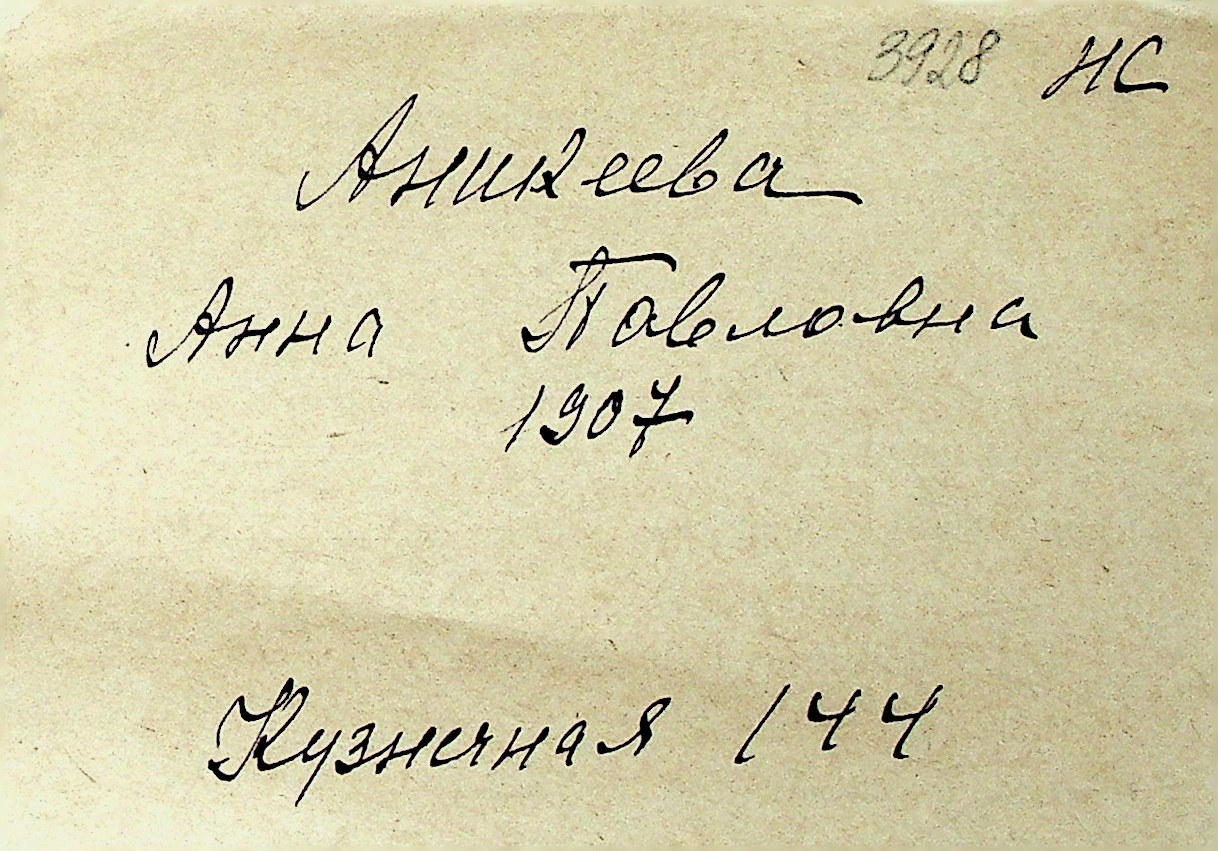 3928 НС
Аникеева
Анна Павловна
1907
Кузнечная 144